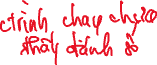 ctrình chạy chgìo
thầy đánh số